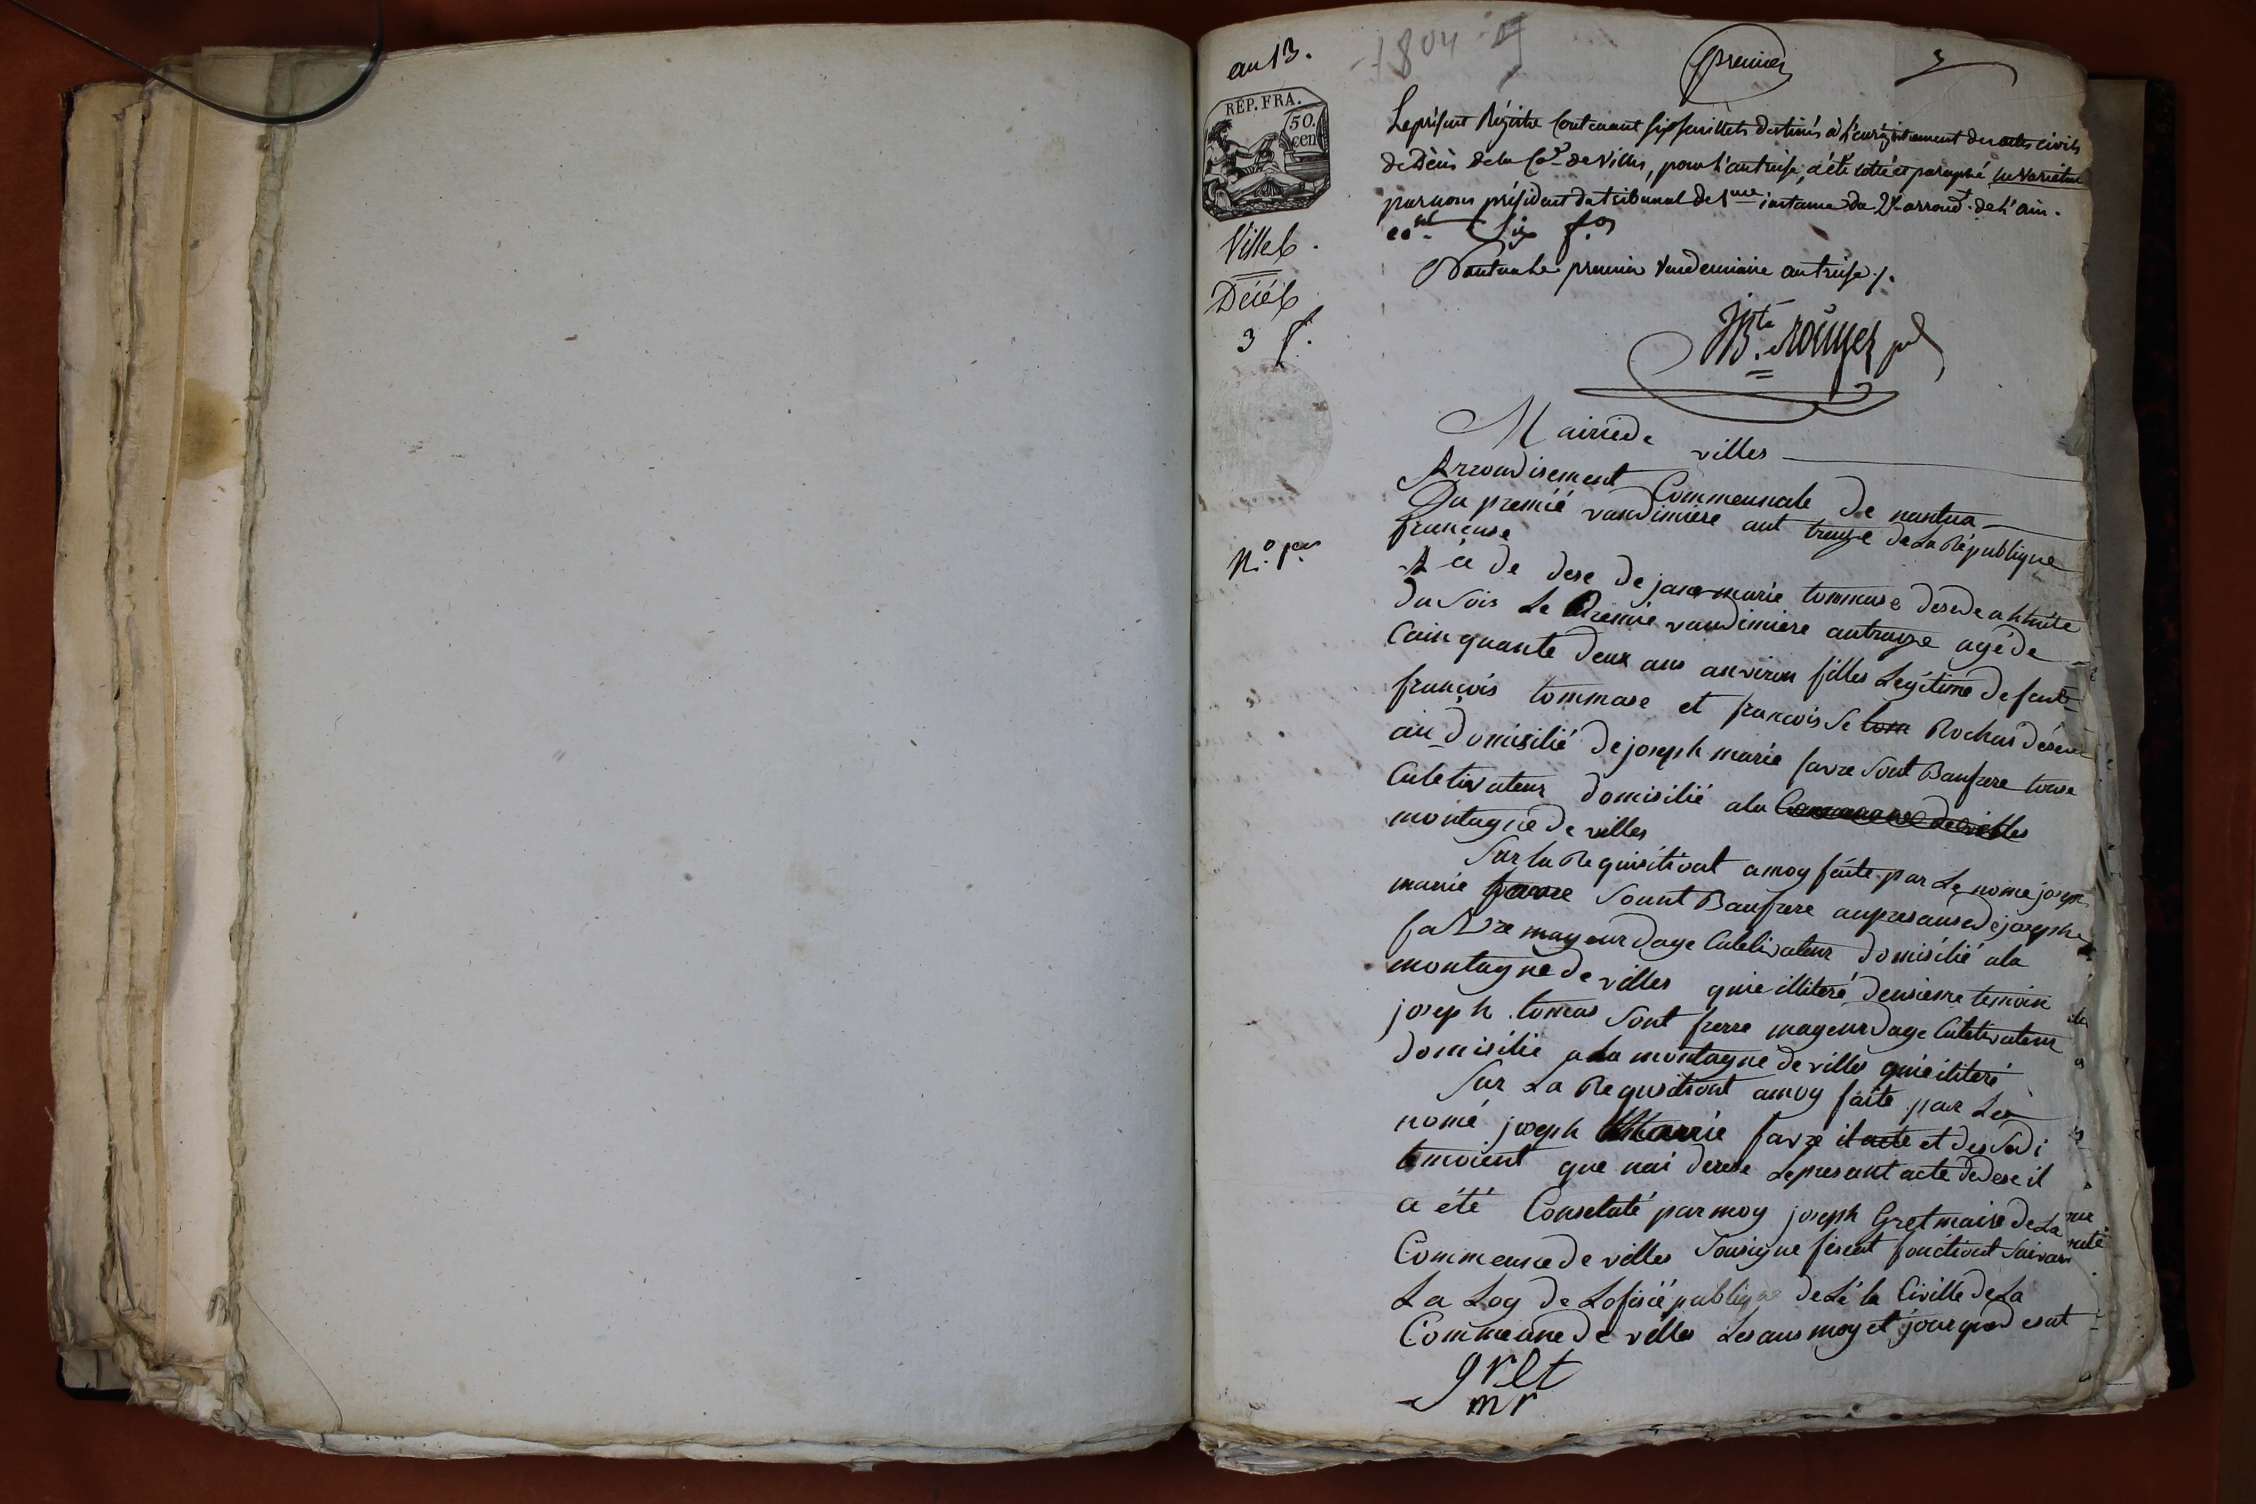 an 13.
1804
premier
3
REP. FRA.
50.
cen
Villes.
Décés
3 f.
Le présent Régistre Contenant six feuillets destinés à l'enrégistrement des actes civils
de Décès de la Cne de Villes, pour l'an treise, a été cotté et paraphé ne varietur
par nous président du tribunal de 1ere instance du 2e arrond.t de l'ain.
Six f.os
Nantua le premier Vendemiaire an treise ./.
JBte. Rouyer pd
Mairie de villes
Arrondisement Commeunale de nantua
Du premié vandimiere ant treuze de La République
franceuse
N.o 1er
A ce de dese de jane marie tommase desede ahuite
du sois Le Premie vandimiere antreuze agé de
Cainquante deux ans anviron filles Legitime de feut
françois tommase et francoise tom Rochas
domisilié de joseph marie favre sont Baufrere touse
Culetivateur domisilié ala Commeune de villes
montagne de villes
Sur La Requisitiont amoy faite par Le nome joseph
marie favre sount Baufrere anpresanse de joseph
favre mayeur dage Culetivateur domisilié ala
montagne de villes quie illiteré deusieme temoin
joseph tomas sont frere mayeur dage Culetivateur
domisilie ala montagne de villes quieiliteré
Sur La Requisitiont amoy faite par Lee
nomé joseph Marie favre il acte et des sodi
temoient que nai derese Lepresant acte dedese il
a été Consetaté par moy joseph Gret maire de La
Commeune de villes sousigne fesent fonctiont suivan
La Loy de Lofisié publique de Lé ta Civille de La
Commeune de villes Les ans moy et jour que desut
gret
mr